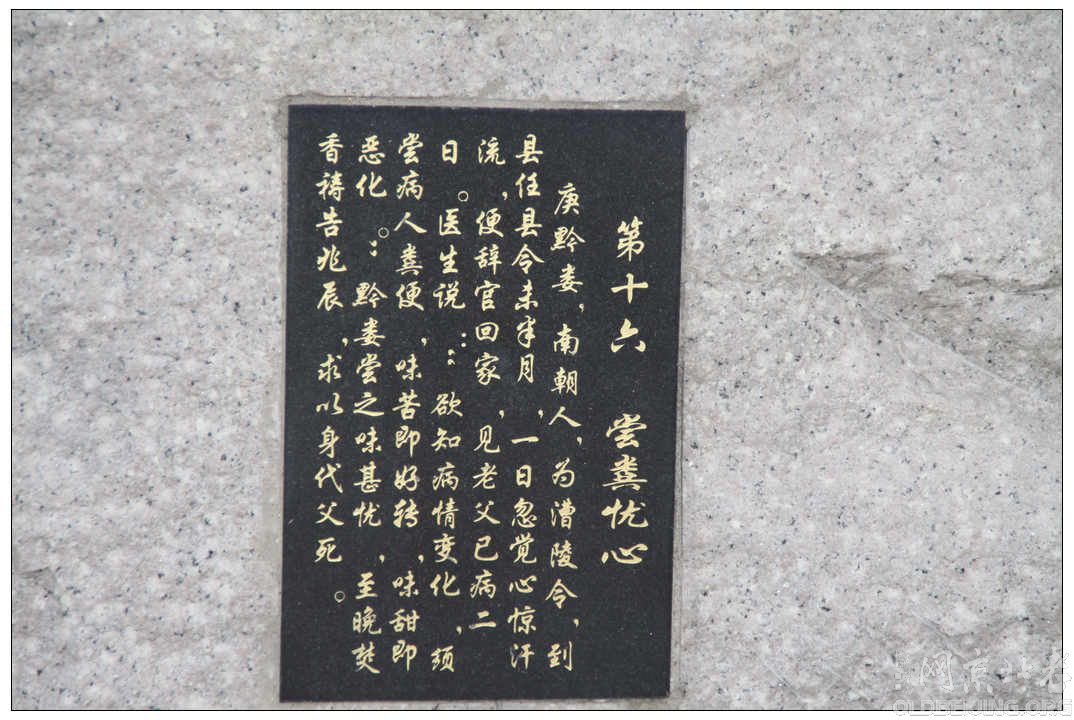 第十六 尝粪忧心
庚黔娄，南朝人，为漕陵令，到
县任县令未半月，一日忽觉心惊汗
流，便辞官回家，见老父已病二
日。医生说：“欲知病情变化，须
尝病人粪便，味苦即好转，味甜即
恶化。”黔娄尝之味甚忧，至晚焚
香祷告北辰，求以身代父死。
老北京网
OLDBEIJING.ORG